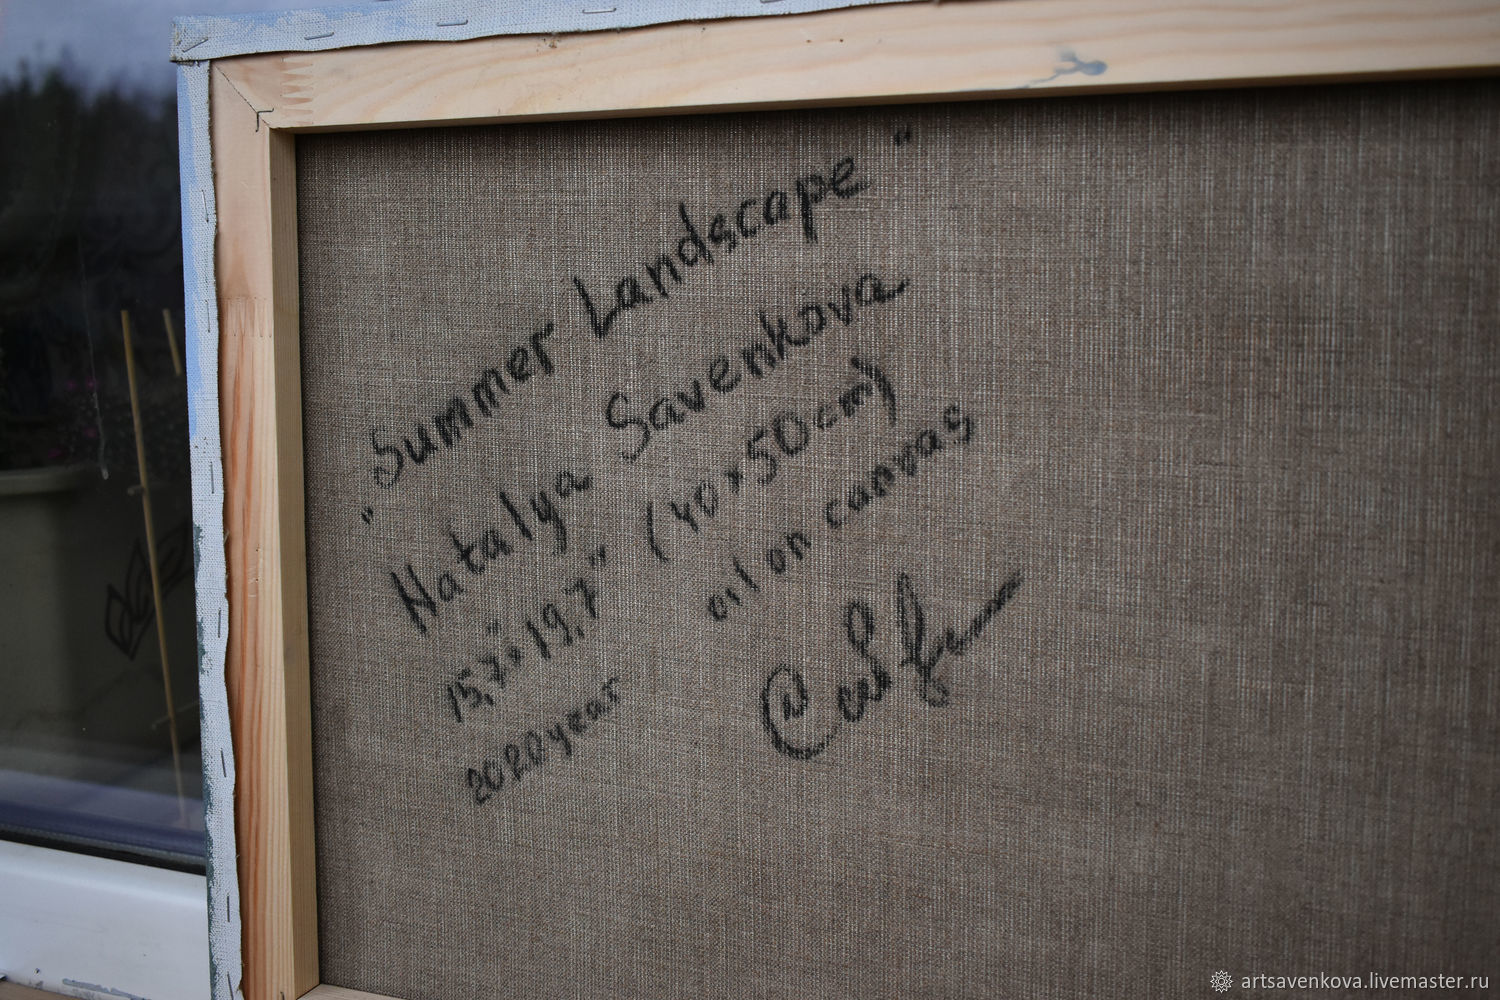 "Summer Landscape"
Natalya Savenkova
15,7" x 19,7" (40 x 50 cm)
2020 year oil on canvas
artsavenkova.livemaster.ru